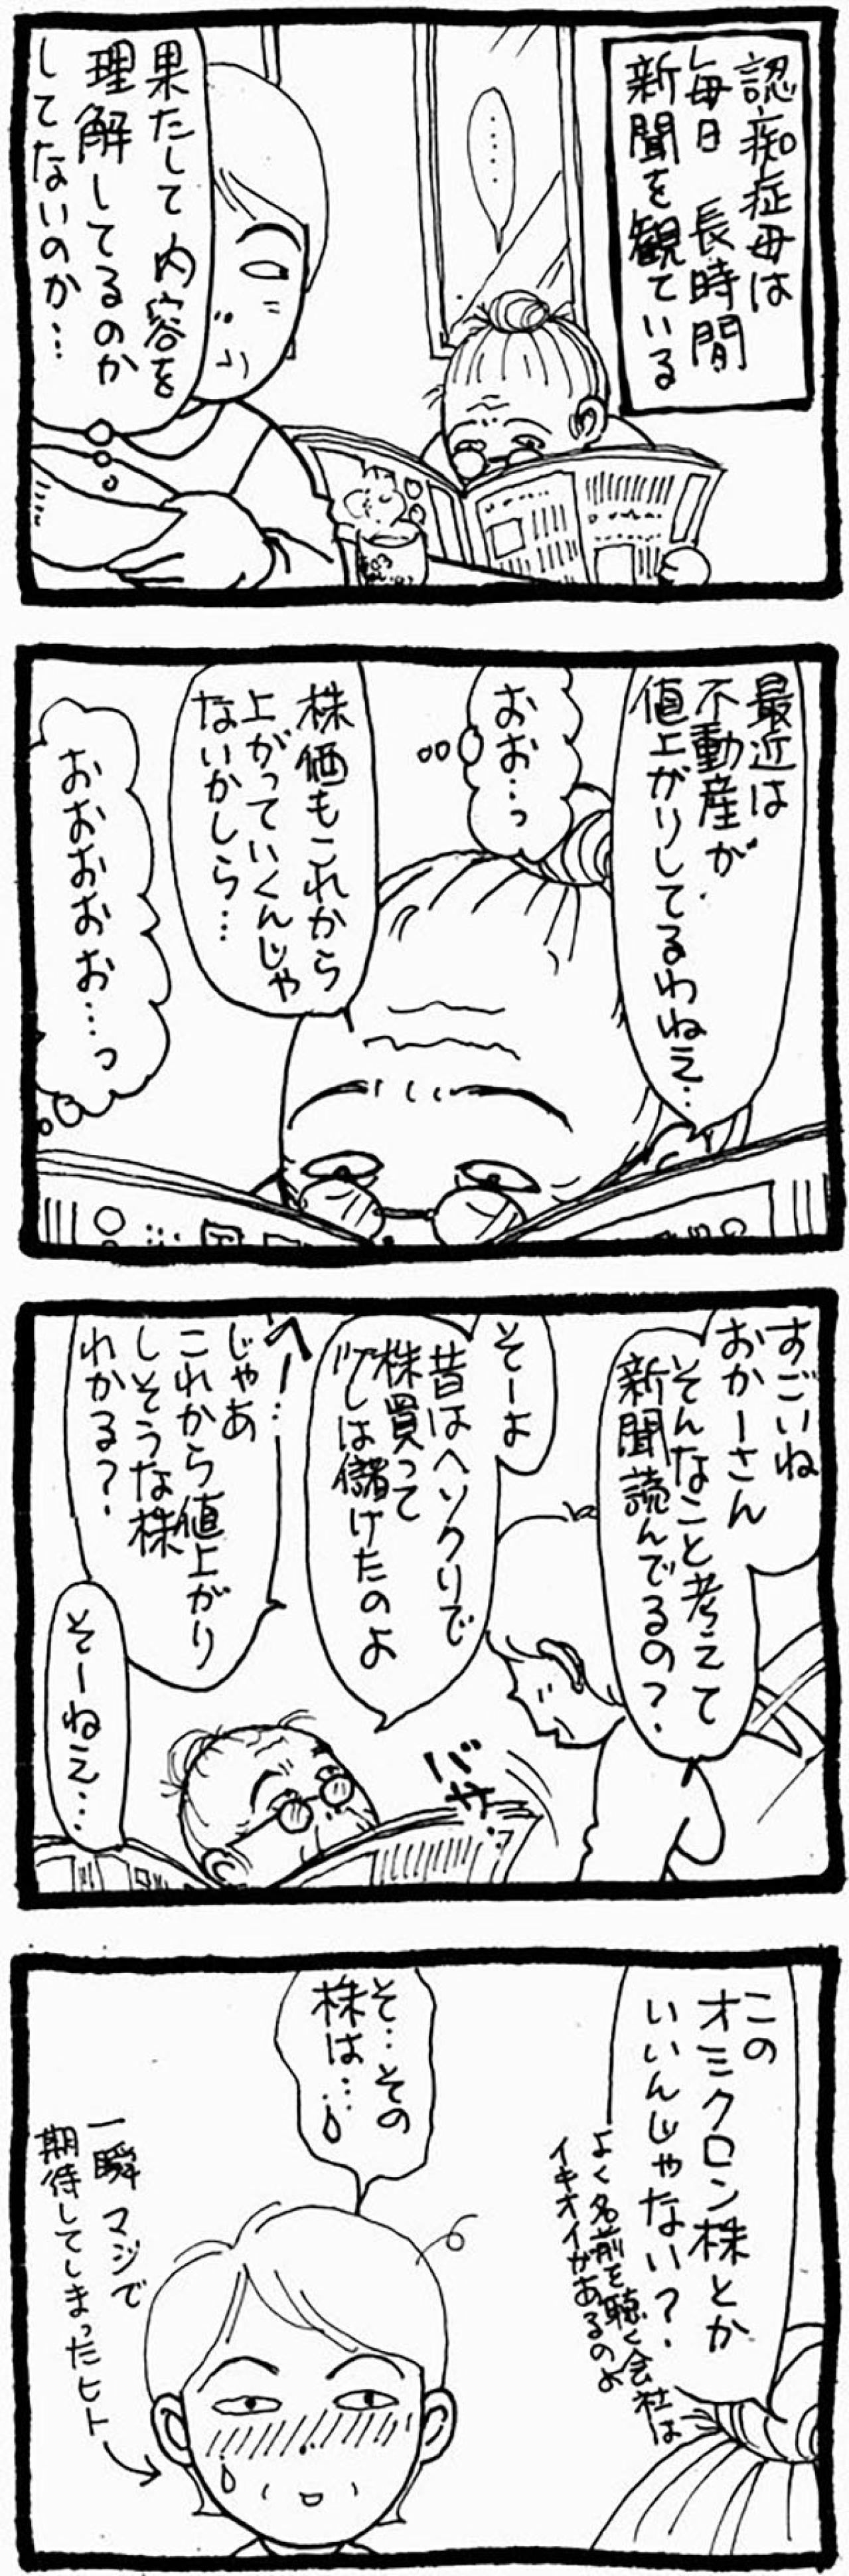 認知症母は
毎日 長時間
新聞を観ている
……
果たして 内容を
理解してるのか
してないのか…
最近は
不動産が
値上がりしてるわねえ…
おお…っ
株価もこれから
上がっていくんじゃ
ないかしら…
おおおおお…っ
すごいね
おかーさん
そんなこと考えて
新聞読んでるの?
そーよ
昔はヘソクリで
株買って
少しは儲けたのよ
へー…
じゃあ
これから値上がり
しそうな株
わかる?
バサッ
そーねえ…
この
オミクロン株とか
いいんじゃない?
よく名前を聴く会社は
イキオイがあるのよ
そ…その
株は…
一瞬 マジで
期待してしまったヒト